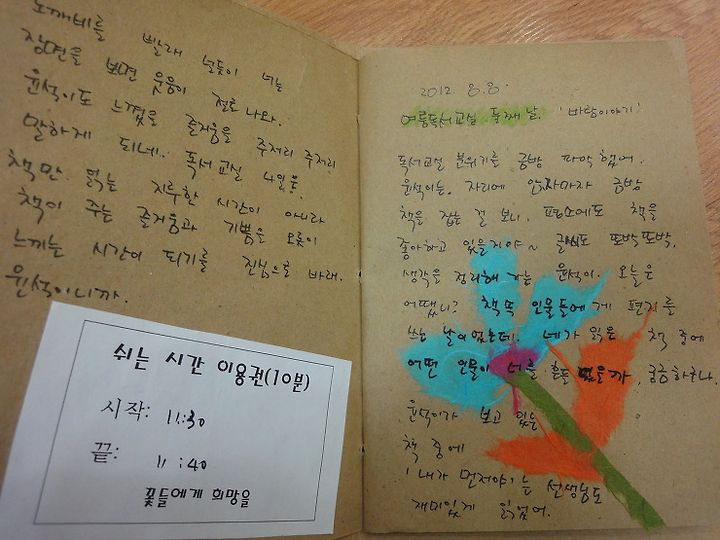 도깨비를 빨래 널듯이 너는
장면을 보면 웃음이 절로 나와.
윤석이도 느꼈을 즐거움을 주저리 주저리
말하게 되네. 독서 교실 4일은
책만 읽는 지루한 시간이 아니라
책이 주는 즐거움과 기쁨을 오롯이
느끼는 시간이 되기를 진심으로 바래.
윤석이니까.
쉬는 시간 이용권(10분)
시작: 11:30
끝: 11:40
꽃들에게 희망을
2012. 8. 8.
여름독서교실 둘째 날. '바람이야기'
독서교실 분위기를 금방 파악했어.
윤석이는. 자리에 앉자마자 금방
책을 잡는 걸 보니. 평소에도 책을
좋아하고 있을지야~ 글씨도 또박또박.
생각을 정리해 가는 윤석이. 오늘은
어땠니? 책 속 인물들에게 편지를
쓰는 날이었는데. 네가 읽은 책 중에
어떤 인물이 너를 흔들었을까, 궁금하구나.
윤석이가 보고 있는
책 중에
'내가 먼저야'는 선생님도
재미있게 읽었어.